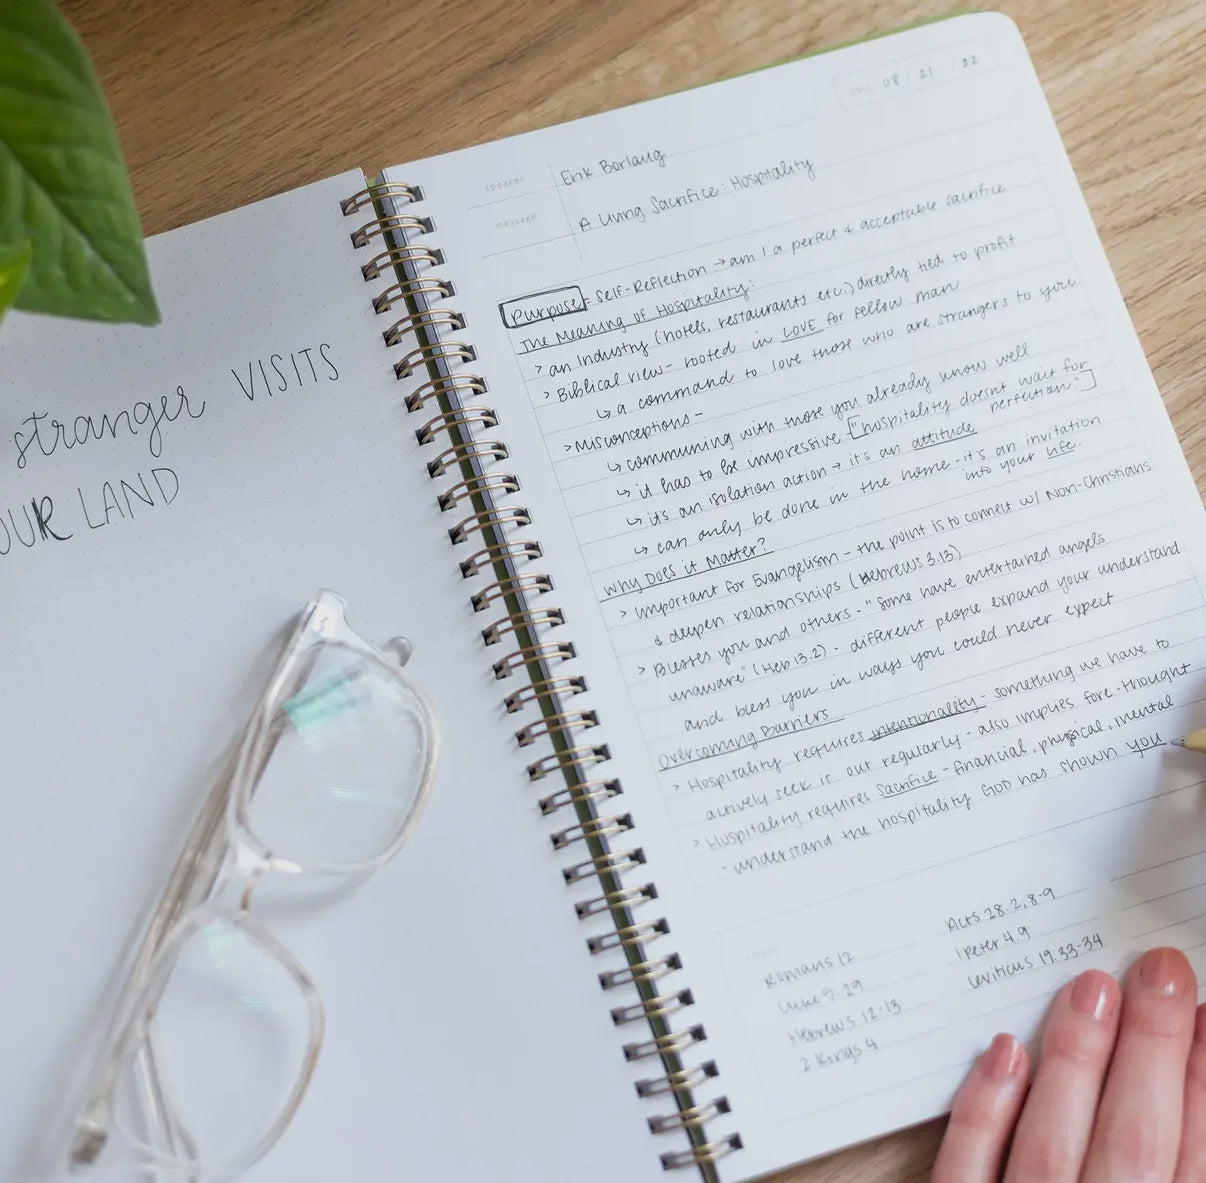 stranger VISITS
OUR LAND
date 08 / 21 / 22
speaker Erik Borlaug
message A Living Sacrifice: Hospitality
Purpose = Self-Reflection → am I a perfect & acceptable sacrifice
The Meaning of Hospitality:
> an Industry (hotels, restaurants etc.) directly tied to profit
> Biblical view - rooted in LOVE for fellow man
↳ a command to love those who are strangers to you
> Misconceptions -
↳ communing with those you already know well
↳ it has to be impressive ["hospitality doesn't wait for perfection."]
↳ it's an isolation action → it's an attitude
↳ can only be done in the home - it's an invitation into your life.
Why Does it Matter?
> Important for Evangelism - the point is to connect w/ Non-Christians
& deepen relationships (Hebrews 3.13)
> Blesses you and others - "Some have entertained angels
unaware" (Heb 13.2) - different people expand your understand
and bless you in ways you could never expect
Overcoming Barriers
> Hospitality requires intentionality - something we have to
actively seek it out regularly - also implies fore-thought
> Hospitality requires sacrifice - financial, physical, mental
- understand the hospitality GOD has shown you
Romans 12
Luke 5.29
Hebrews 12-13
2 Kings 4
Acts 28.2, 8-9
1 Peter 4.9
Leviticus 19.33-34